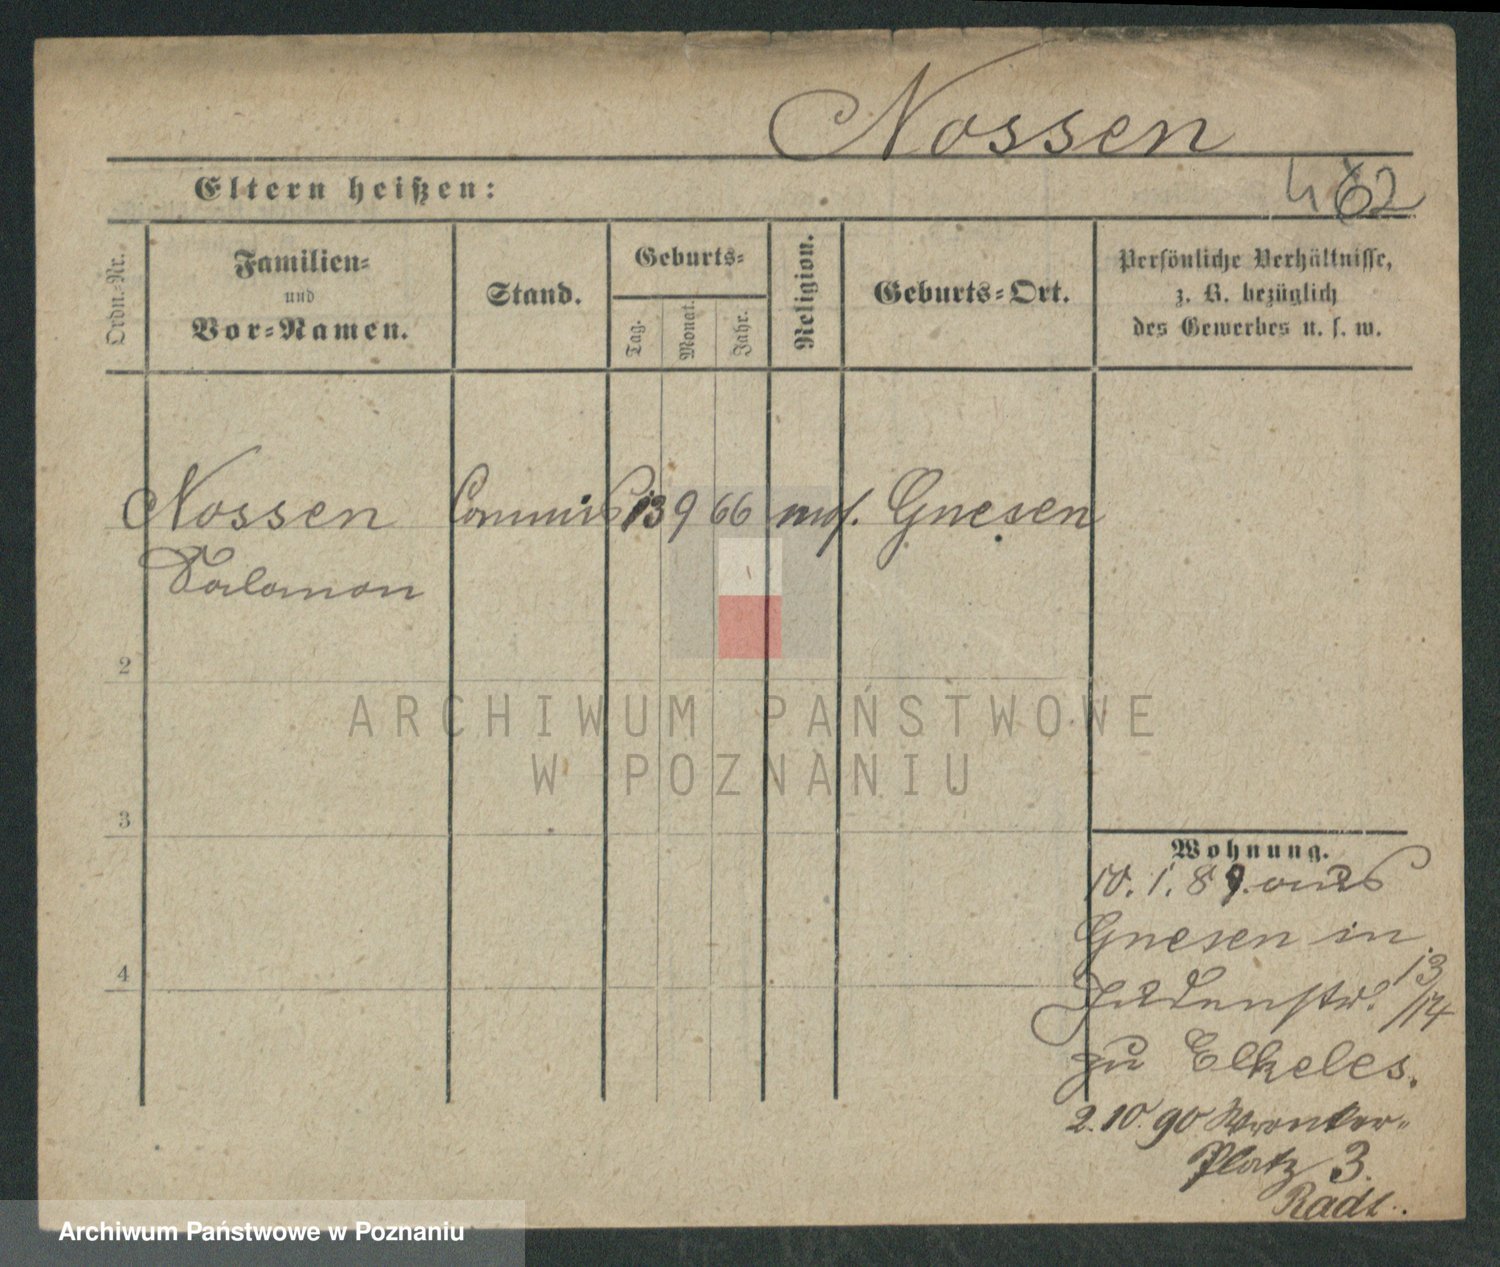 Nossen
Eltern heißen:
462
Ordn.-Nr.
Familien-
und
Vor-Namen.
Stand.
Geburts-
Tag.
Monat.
Jahr.
Religion.
Geburts-Ort.
Persönliche Verhältnisse,
z. B. bezüglich
des Gewerbes u. s. w.
Nossen Commis 13 9 66 mos. Gnesen
Salomon
2
ARCHIWUM PAŃSTWOWE
W POZNANIU
3
4
Wohnung.
10. 1. 89. aus
Gnesen in
Judenstr. 13/14
zu Elkeles.
2. 10. 90 Wronker-
Platz 3.
Radt.
Archiwum Państwowe w Poznaniu